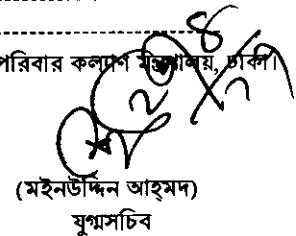 পরিবার কল্যাণ মন্ত্রণালয়, ঢাকা।
(মইনউদ্দিন আহ্‌মদ)
যুগ্মসচিব